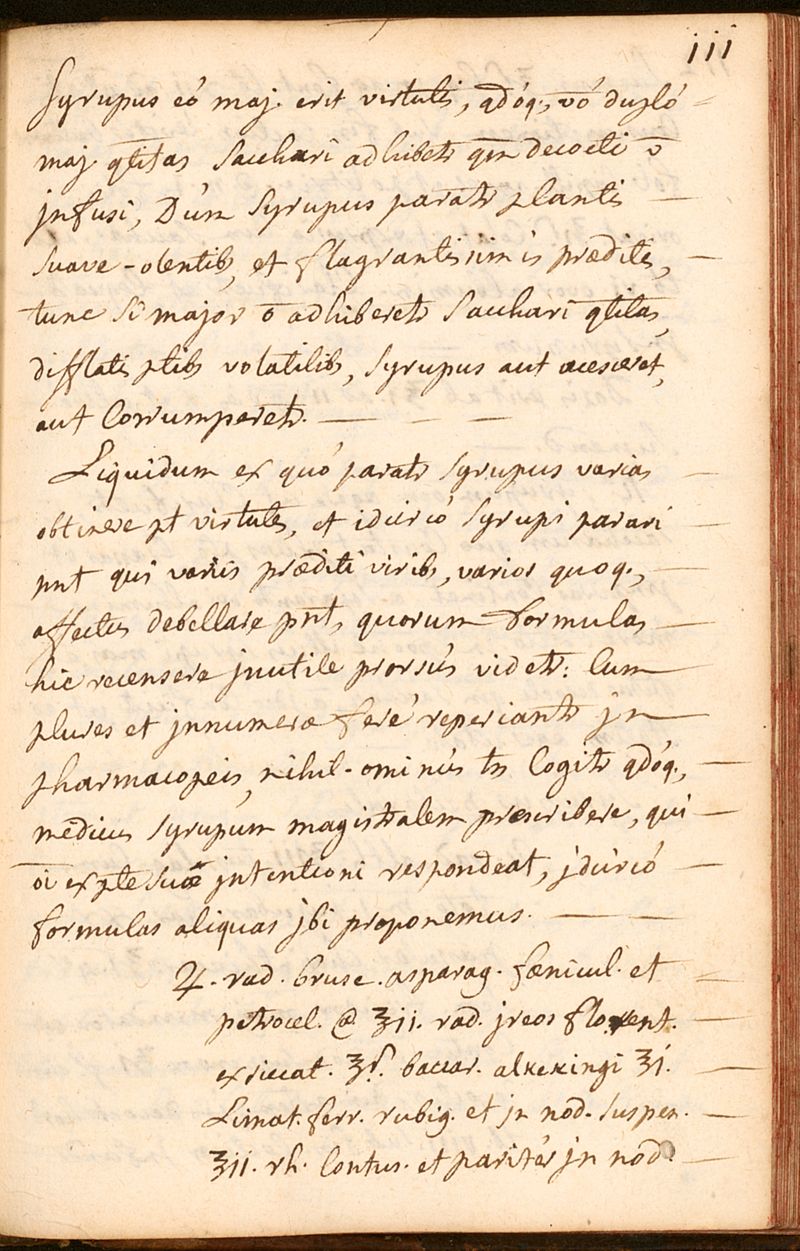 111
Syrupus eó maj. erit virtutis, qdóq, vó dupló
maj. qtitas Sacchari adhibetr qm decocti v̄
jnfusi, Dúm Syrupus paratr plantis
suave-olentib, et flagrantissimis præditis,
tunc Si major ō adhiberetr Sacchari qtitas,
difflatis ptib volatilib, Syrupus aut acesceret,
aut Corrumperetr.
Liquidum ex quó paratr Syrupus varias
obtinere pt virtutes, et idcircó Syrupi parari
pnt qui variis præditi virib, varios quoq,
affectus debellare pnt, quorum formulas
hic recensere jnutile prorsús videtr: Cum
plures et jnnumeræ feré reperiantr jn
pharmacopeis, nihil-ominús tn Cogitr qdóq,
medicus Syrupum magistralem præscribere, qui
oi ex pte suæ jntentioni respondeat, jdcircó
formulas aliquas jbi proponemus.
♃. rad. brusc. asparag. fænicul. et
petrocel. @ ℥ii. rad. jreos florent.
exsiccat. ℥ſ. baccar. alkekingi ℥j.
Limat. ferr. rubig. et jn nod. suspen.
℥ii. rh. Contus. et paritér jn nod.